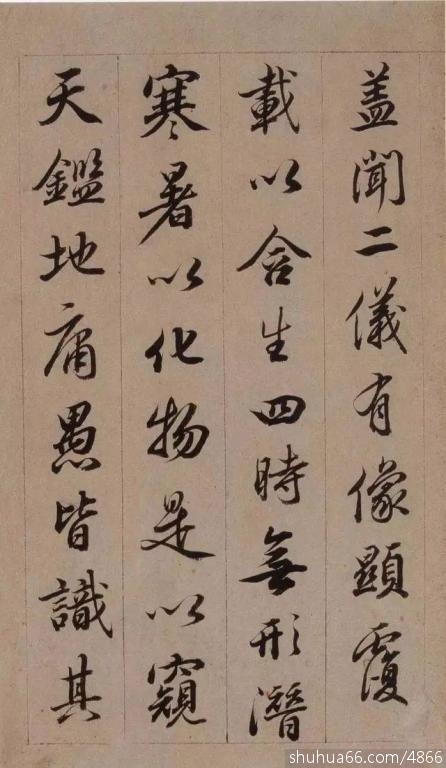 盖聞二儀有像顯覆
載以含生四時無形潛
寒暑以化物是以窺
天鑑地庸愚皆識其
shuhua66.com/4866